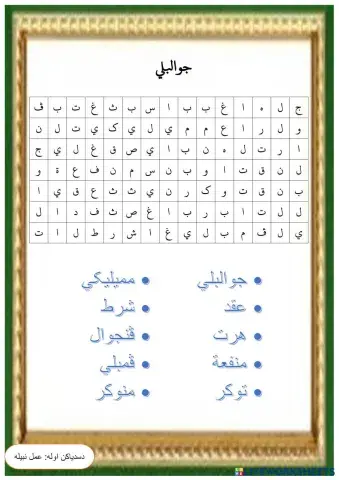 جوالبلي
ج ل ه ا غ ب ب ا س ب ث غ ت ب ڤ
و ل ر ا ع م م ي ل ي ک ي ت ل ن
ا ر ت ل ه ن ب ا ي ص ق غ ل ي ج
ل ن ق ت ا و ب ن س م ن ف ع ة و
ب ن ق ت و ک ر ن ي ث ث ع ق ي ا
ل ل ت ا ب ر ب ا غ ص ث ف د ا ل
ي ل ڤ م ب ل ي غ ا ش ر ط ل ا ت
• جوالبلي
• عقد
• هرت
• منفعة
• توكر
• مميليكي
• شرط
• ڤنجوال
• ڤمبلي
• منوكر
دسدياكن اوله: عمل نبيله
LIVEWORKSHEETS